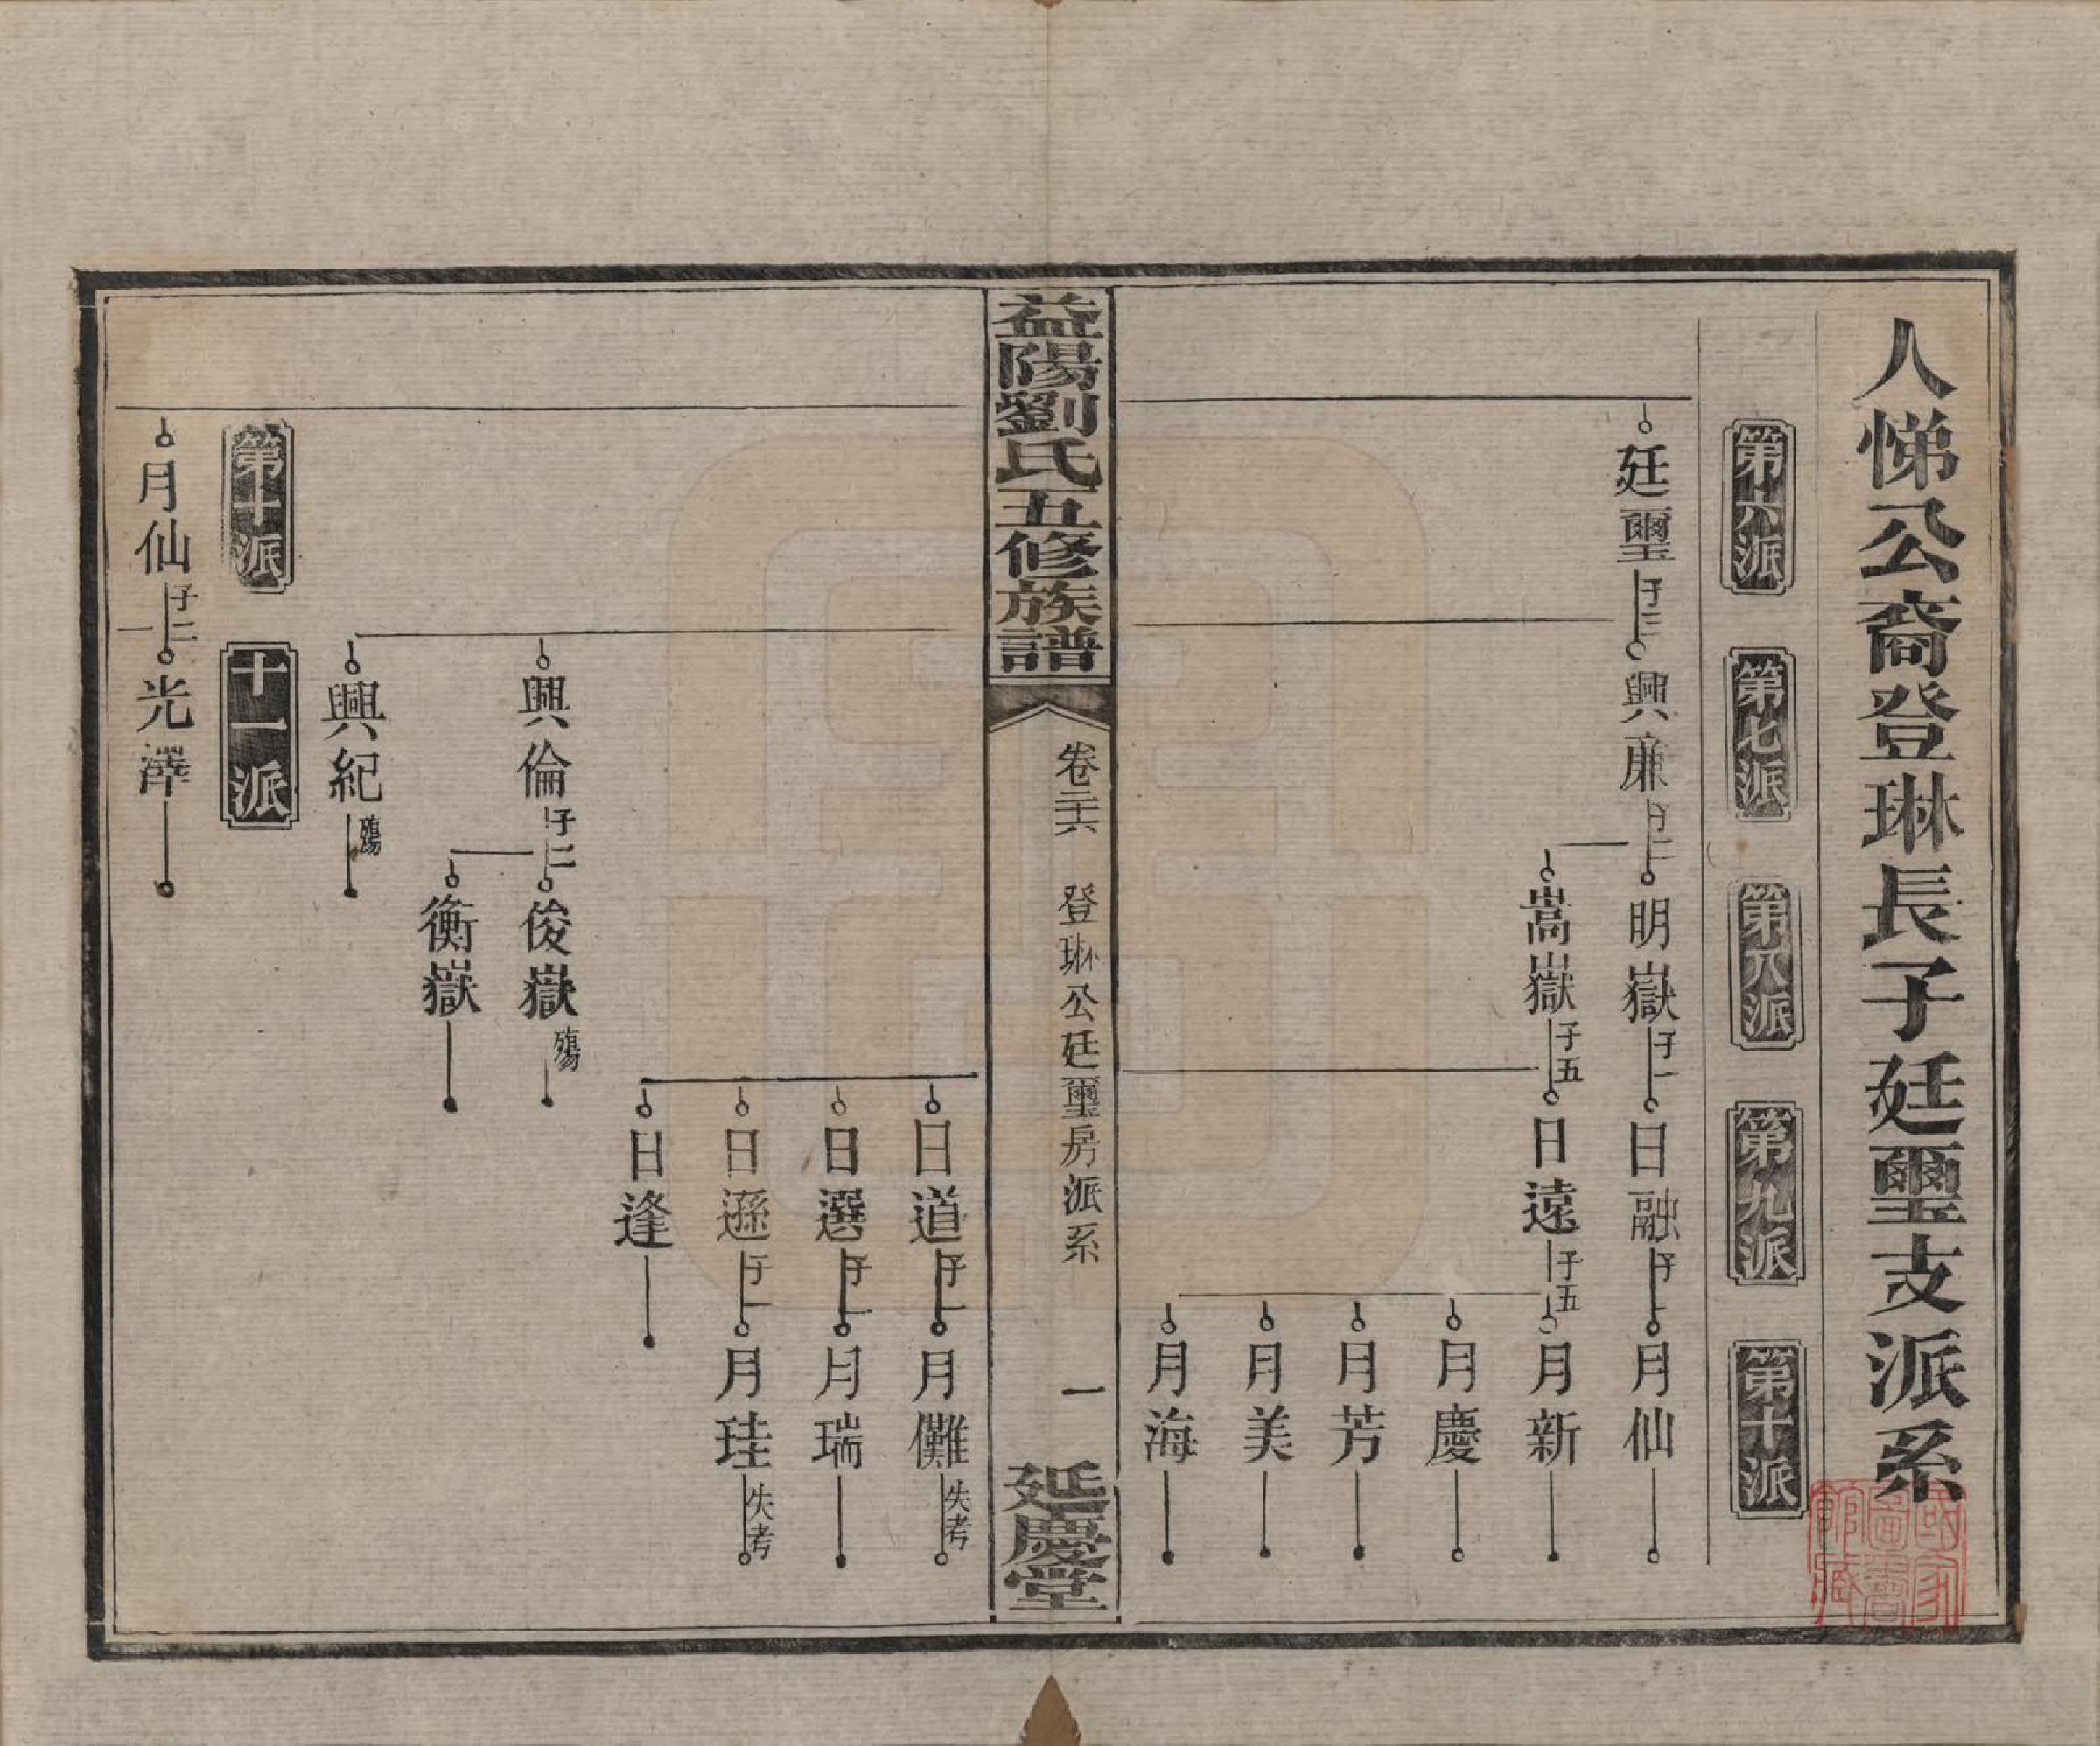 人悌公裔登琳長子廷璽支派系
第六派
第七派
第八派
第九派
第十派
廷璽子三
興廉子二
明嶽子一
日融子一
月仙
嵩嶽子五
日遠子五
月新
月慶
月芳
月美
月海
益陽劉氏五修族譜
卷二六
登琳公廷璽房派系
一
延慶堂
日道子一
月儺失考
日選子一
月瑞
日遜子一
月珪失考
日逢
興倫子二
俊嶽殤
衡嶽
興紀殤
第十派
十一派
月仙子二
光澤
國家圖書館藏